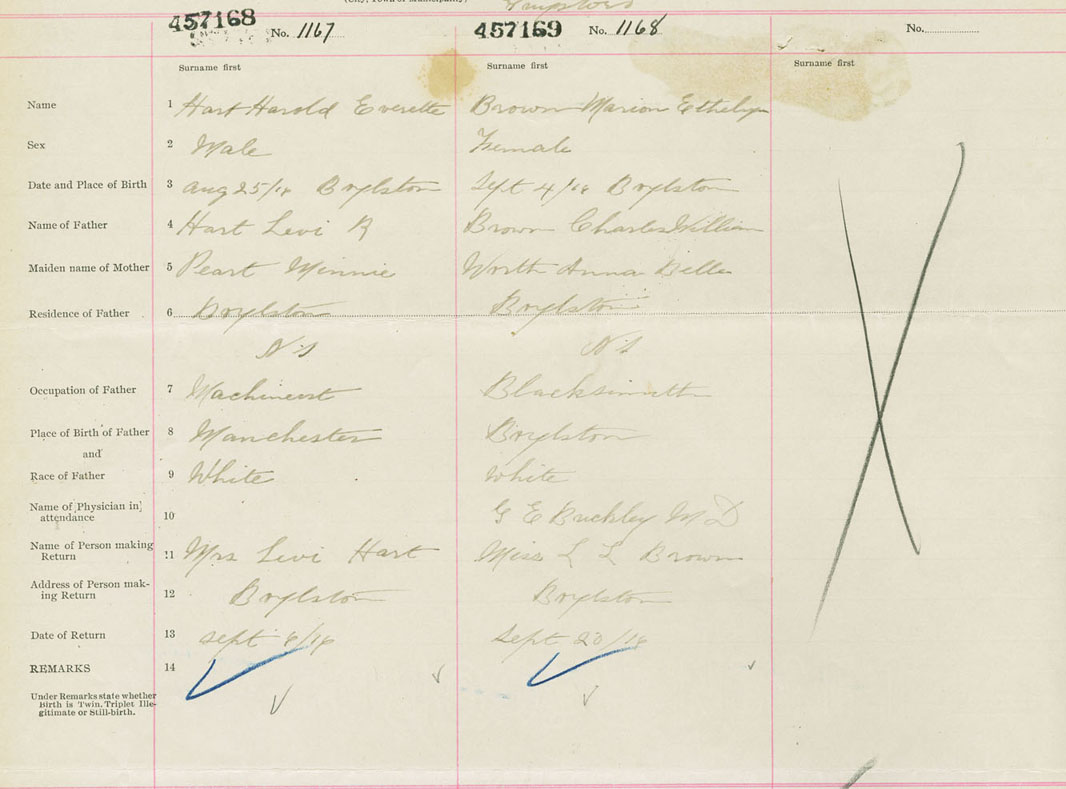 (City, Town or Municipality)
457168 No. 1167 457169 No. 1168 No.
Surname first Surname first Surname first
Name 1 Hart Harold Everette Brown Marion Ethelyn
Sex 2 Male Female
Date and Place of Birth 3 Aug 25/16 Boylston Sept 4/16 Boylston
Name of Father 4 Hart Levi R Brown Charles William
Maiden name of Mother 5 Peart Minnie Worth Anna Belle
Residence of Father 6 Boylston Boylston
N S N S
Occupation of Father 7 Machinest Blacksmith
Place of Birth of Father 8 Manchester Boylston
and
Race of Father 9 White White
Name of Physician in
attendance 10 G E Buckley M D
Name of Person making
Return 11 Mrs Levi Hart Miss L L Brown
Address of Person mak-
ing Return 12 Boylston Boylston
Date of Return 13 Sept 6/16 Sept 20/16
REMARKS 14
Under Remarks state whether
Birth is Twin, Triplet Ille-
gitimate or Still-birth.